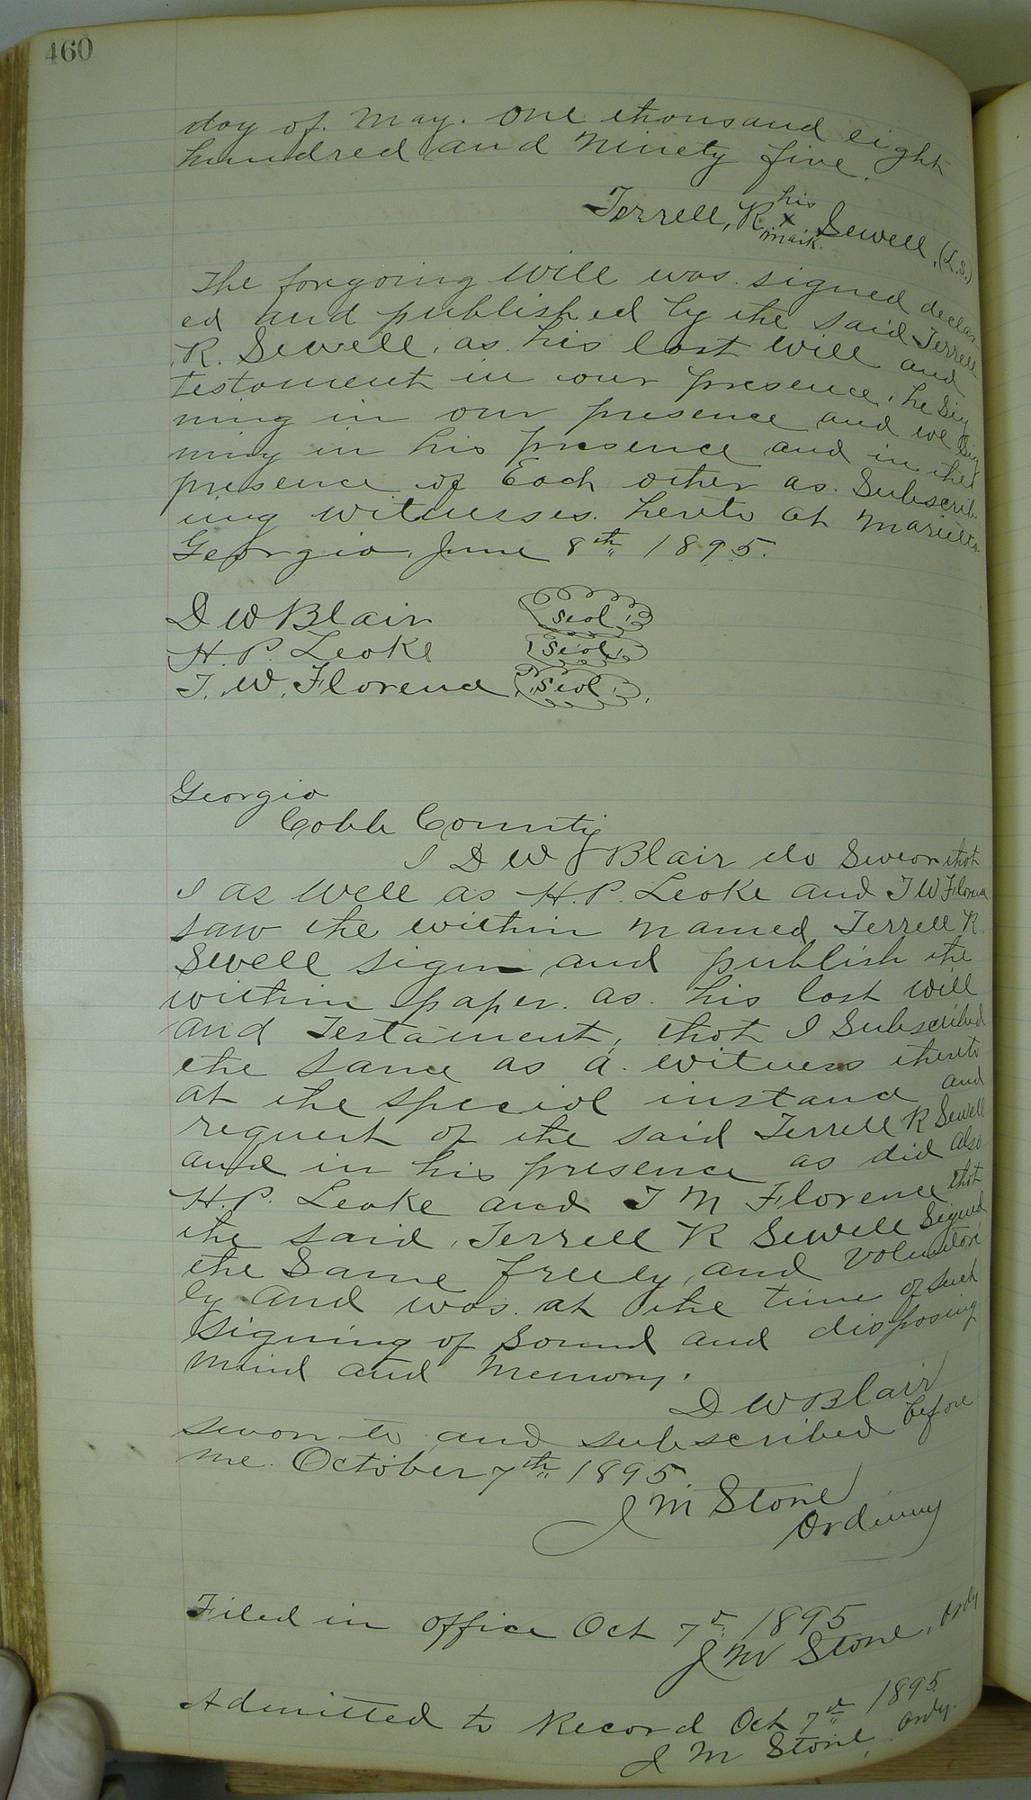 460
day of. May. One thousand eight
hundred and Ninety five.
Terrell, R. his x mark. Sewell, (L.S.)
The foregoing Will was signed declar-
ed and published by the said Terrell
R. Sewell, as his last Will and
testament in our presence, he Sig
ning in our presence and we Sig
ning in his presence and in the
presence of Each other as. Subscrib-
ing witnesses. hereto at Marietta
Georgia, June 8th 1895.
D W Blair Seal
H. P. Leake Seal
T. W. Florence Seal
Georgia
Cobb County
I D W Blair do Swear that
I as Well as H. P. Leake and T W Florence
saw the within named Terrell R.
Swell sign and publish the
within paper. as. his last will
and Testament, that I Subscribed
the same as a. witness thereto
at the special instance and
request of the said Terrell R Sewell
and in his presence as did also
H. P. Leake and T M Florence that
the said, Terrell R Sewell Signed
the Same freely, and Voluntari
ly and was. at the time of such
signing of Sound and disposing
mind and Memory.
D W Blair
sworn to and subscribed before
me. October 7th 1895
J M Stone
Ordinary
Filed in office Oct 7th 1895
J M Stone, Ordy
Admitted to Record Oct 7th 1895
J M Stone, Ordy.